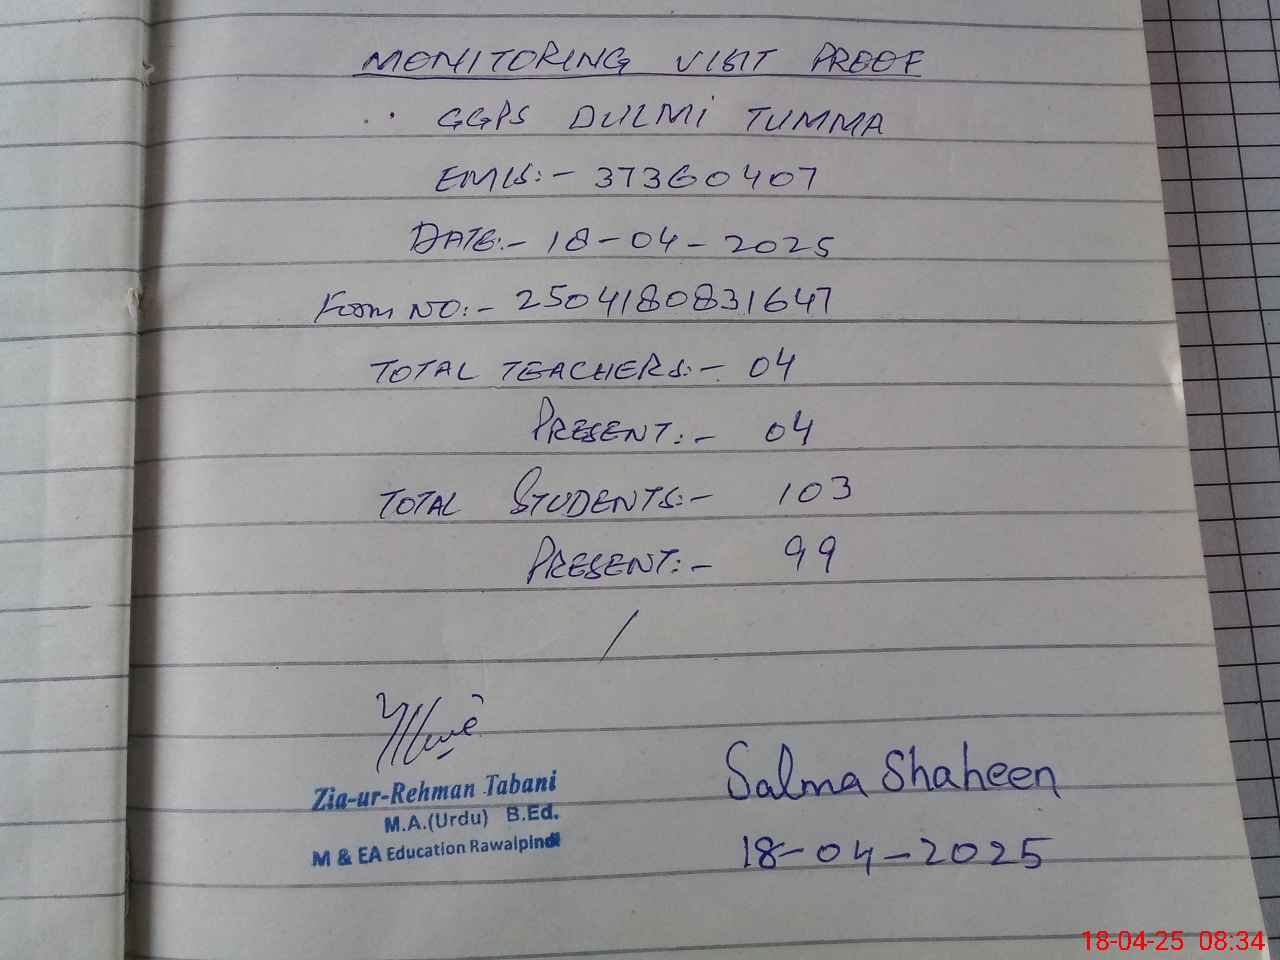 MONITORING VISIT PROOF
GGPS DULMI TUMMA
EMIS:- 37360407
DATE:- 18-04-2025
Form NO:- 2504180831647
TOTAL TEACHERS:- 04
PRESENT:- 04
TOTAL STUDENTS:- 103
PRESENT:- 99
Zia-ur-Rehman Tabani
M.A.(Urdu) B.Ed.
M & EA Education Rawalpindi
Salma Shaheen
18-04-2025
18-04-25 08:34